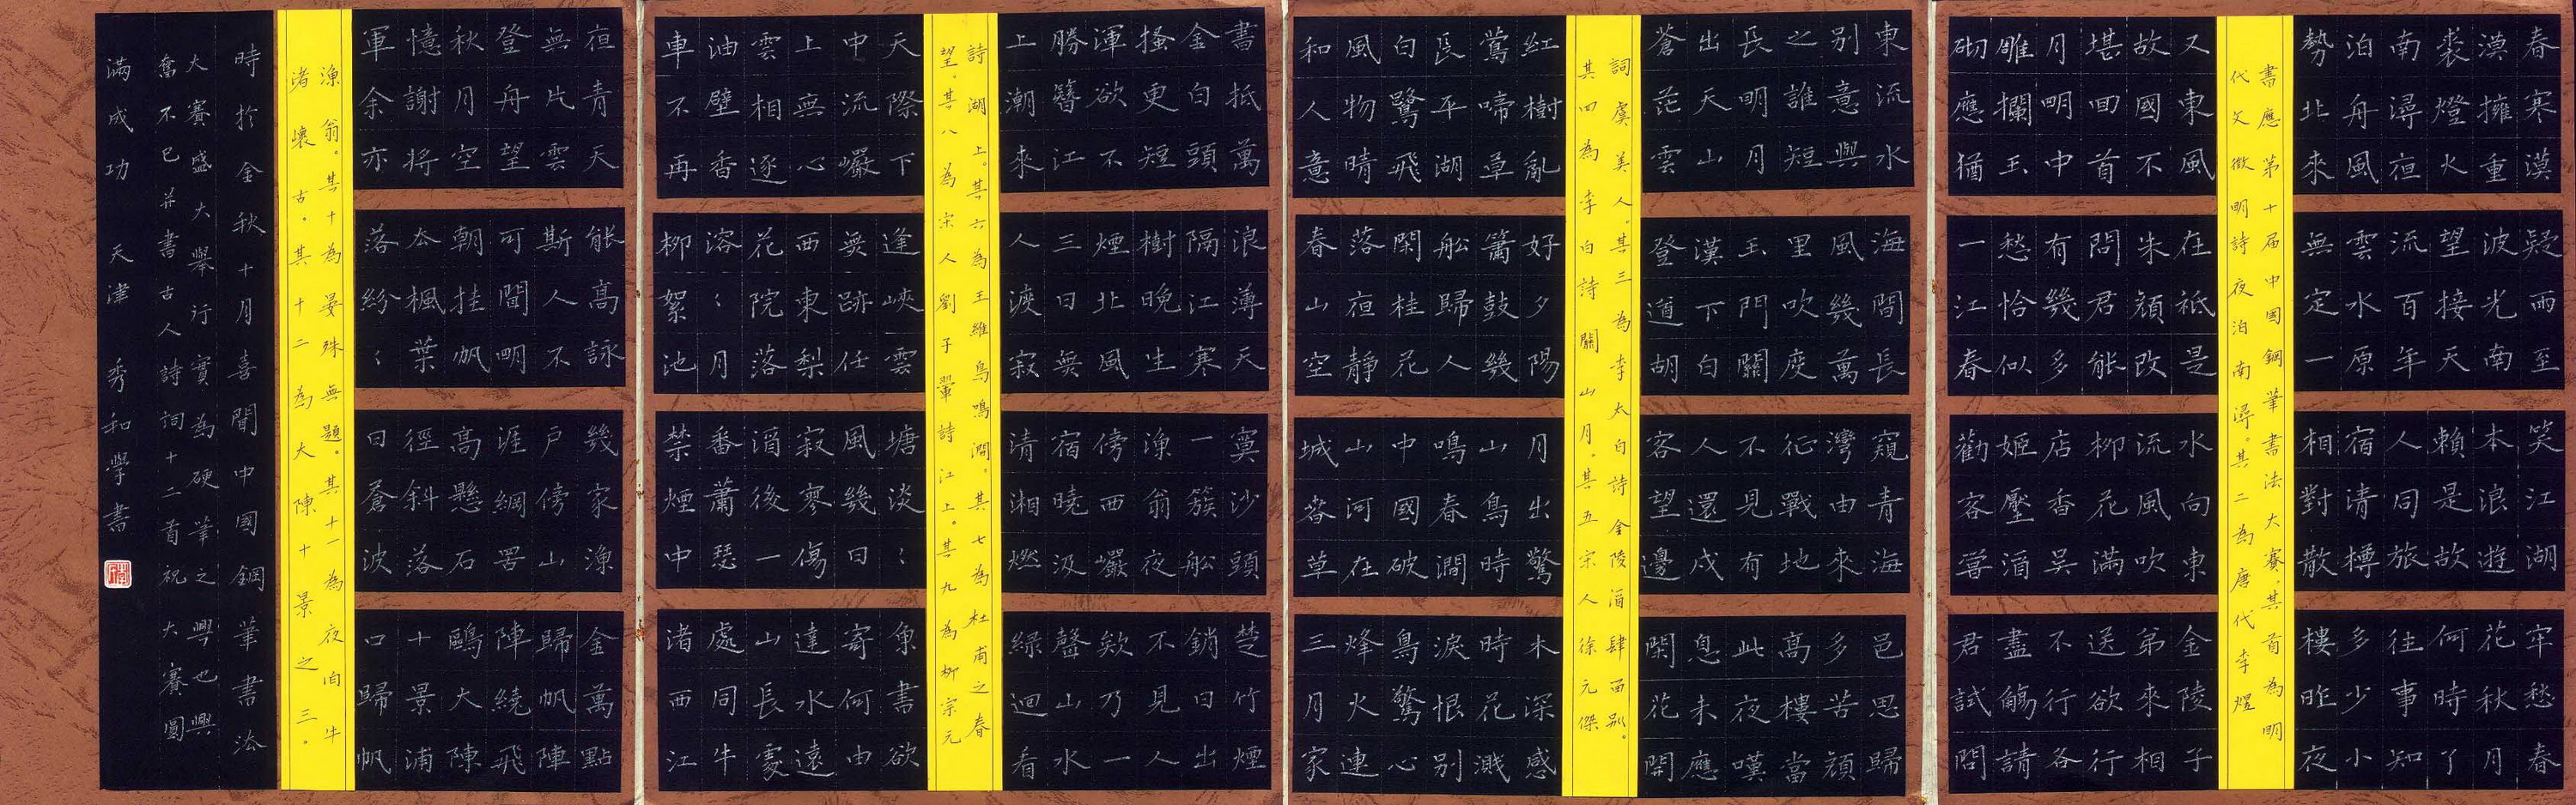 春寒漠
漠擁重
裘燈火
南潯夜
泊舟風
勢北來
疑雨至
波光南
望接天
流百年
雲水原
無定一
笑江湖
本浪遊
賴是故
人同旅
宿清樽
相對散
牢愁春
花秋月
何時了
往事知
多少小
樓昨夜
書應第十届中國鋼筆書法大賽。其首為明
代文徵明詩夜泊南潯。其二為唐代李煜
又東風
故國不
堪回首
月明中
雕欄玉
砌應猶
在祇是
朱顏改
問君能
有幾多
愁恰似
一江春
水向東
流風吹
柳花滿
店香吳
姬壓酒
勸客嘗
金陵子
弟來相
送欲行
不行各
盡觴請
君試問
東流水
別意與
之誰短
長明月
出天山
蒼茫雲
海間長
風幾萬
里吹度
玉門關
漢下白
登道胡
窺青海
灣由來
征戰地
不見有
人還戍
客望邊
邑思歸
多苦顏
高樓當
此夜嘆
息未應
閑花開
詞虞美人。其三為李太白詩金陵酒肆留別。
其四為李白詩關山月。其五宋人徐元傑
紅樹亂
鶯啼草
長平湖
白鷺飛
風物晴
和人意
好夕陽
簫鼓幾
船歸人
閑桂花
落夜靜
春山空
月出驚
山鳥時
鳴春澗
中國破
山河在
城春草
木深感
時花濺
淚恨別
鳥驚心
烽火連
三月家
書抵萬
金白頭
搔更短
渾欲不
勝簪江
上潮來
浪薄天
隔江寒
樹晚生
煙北風
三日無
人渡寂
寞沙頭
一簇船
漁翁夜
傍西巖
宿曉汲
清湘燃
楚竹煙
銷日出
不見人
欸乃一
聲山水
綠迴看
詩湖上。其六為王維鳥鳴澗。其七為杜甫之春
望。其八為宋人劉子翬詩江上。其九為柳宗元
天際下
中流巖
上無心
雲相逐
油壁香
車不再
逢峽雲
無跡任
西東梨
花院落
溶〻月
柳絮池
塘淡〻
風幾日
寂寥傷
酒後一
番蕭瑟
禁煙中
魚書欲
寄何由
達水遠
山長處
處同牛
渚西江
夜青天
無片雲
登舟望
秋月空
憶謝將
軍余亦
能高詠
斯人不
可聞明
朝挂帆
去楓葉
落紛〻
幾家漁
戶傍山
涯網罟
高懸石
徑斜落
日蒼波
金萬點
歸帆陣
陣繞飛
鷗大陳
十景浦
口歸帆
漁翁。其十為晏殊無題。其十一為夜泊牛
渚懷古。其十二為大陳十景之三。
時於金秋十月喜聞中國鋼筆書法
大賽盛大舉行實為硬筆之興也興
奮不已并書古人詩詞十二首祝大賽圓
滿成功 天津 秀和學書